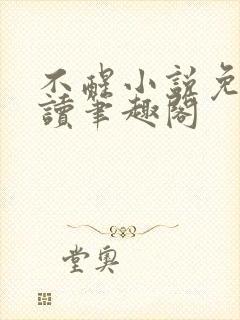 不醒小說免
讀筆趣閣
堂奧